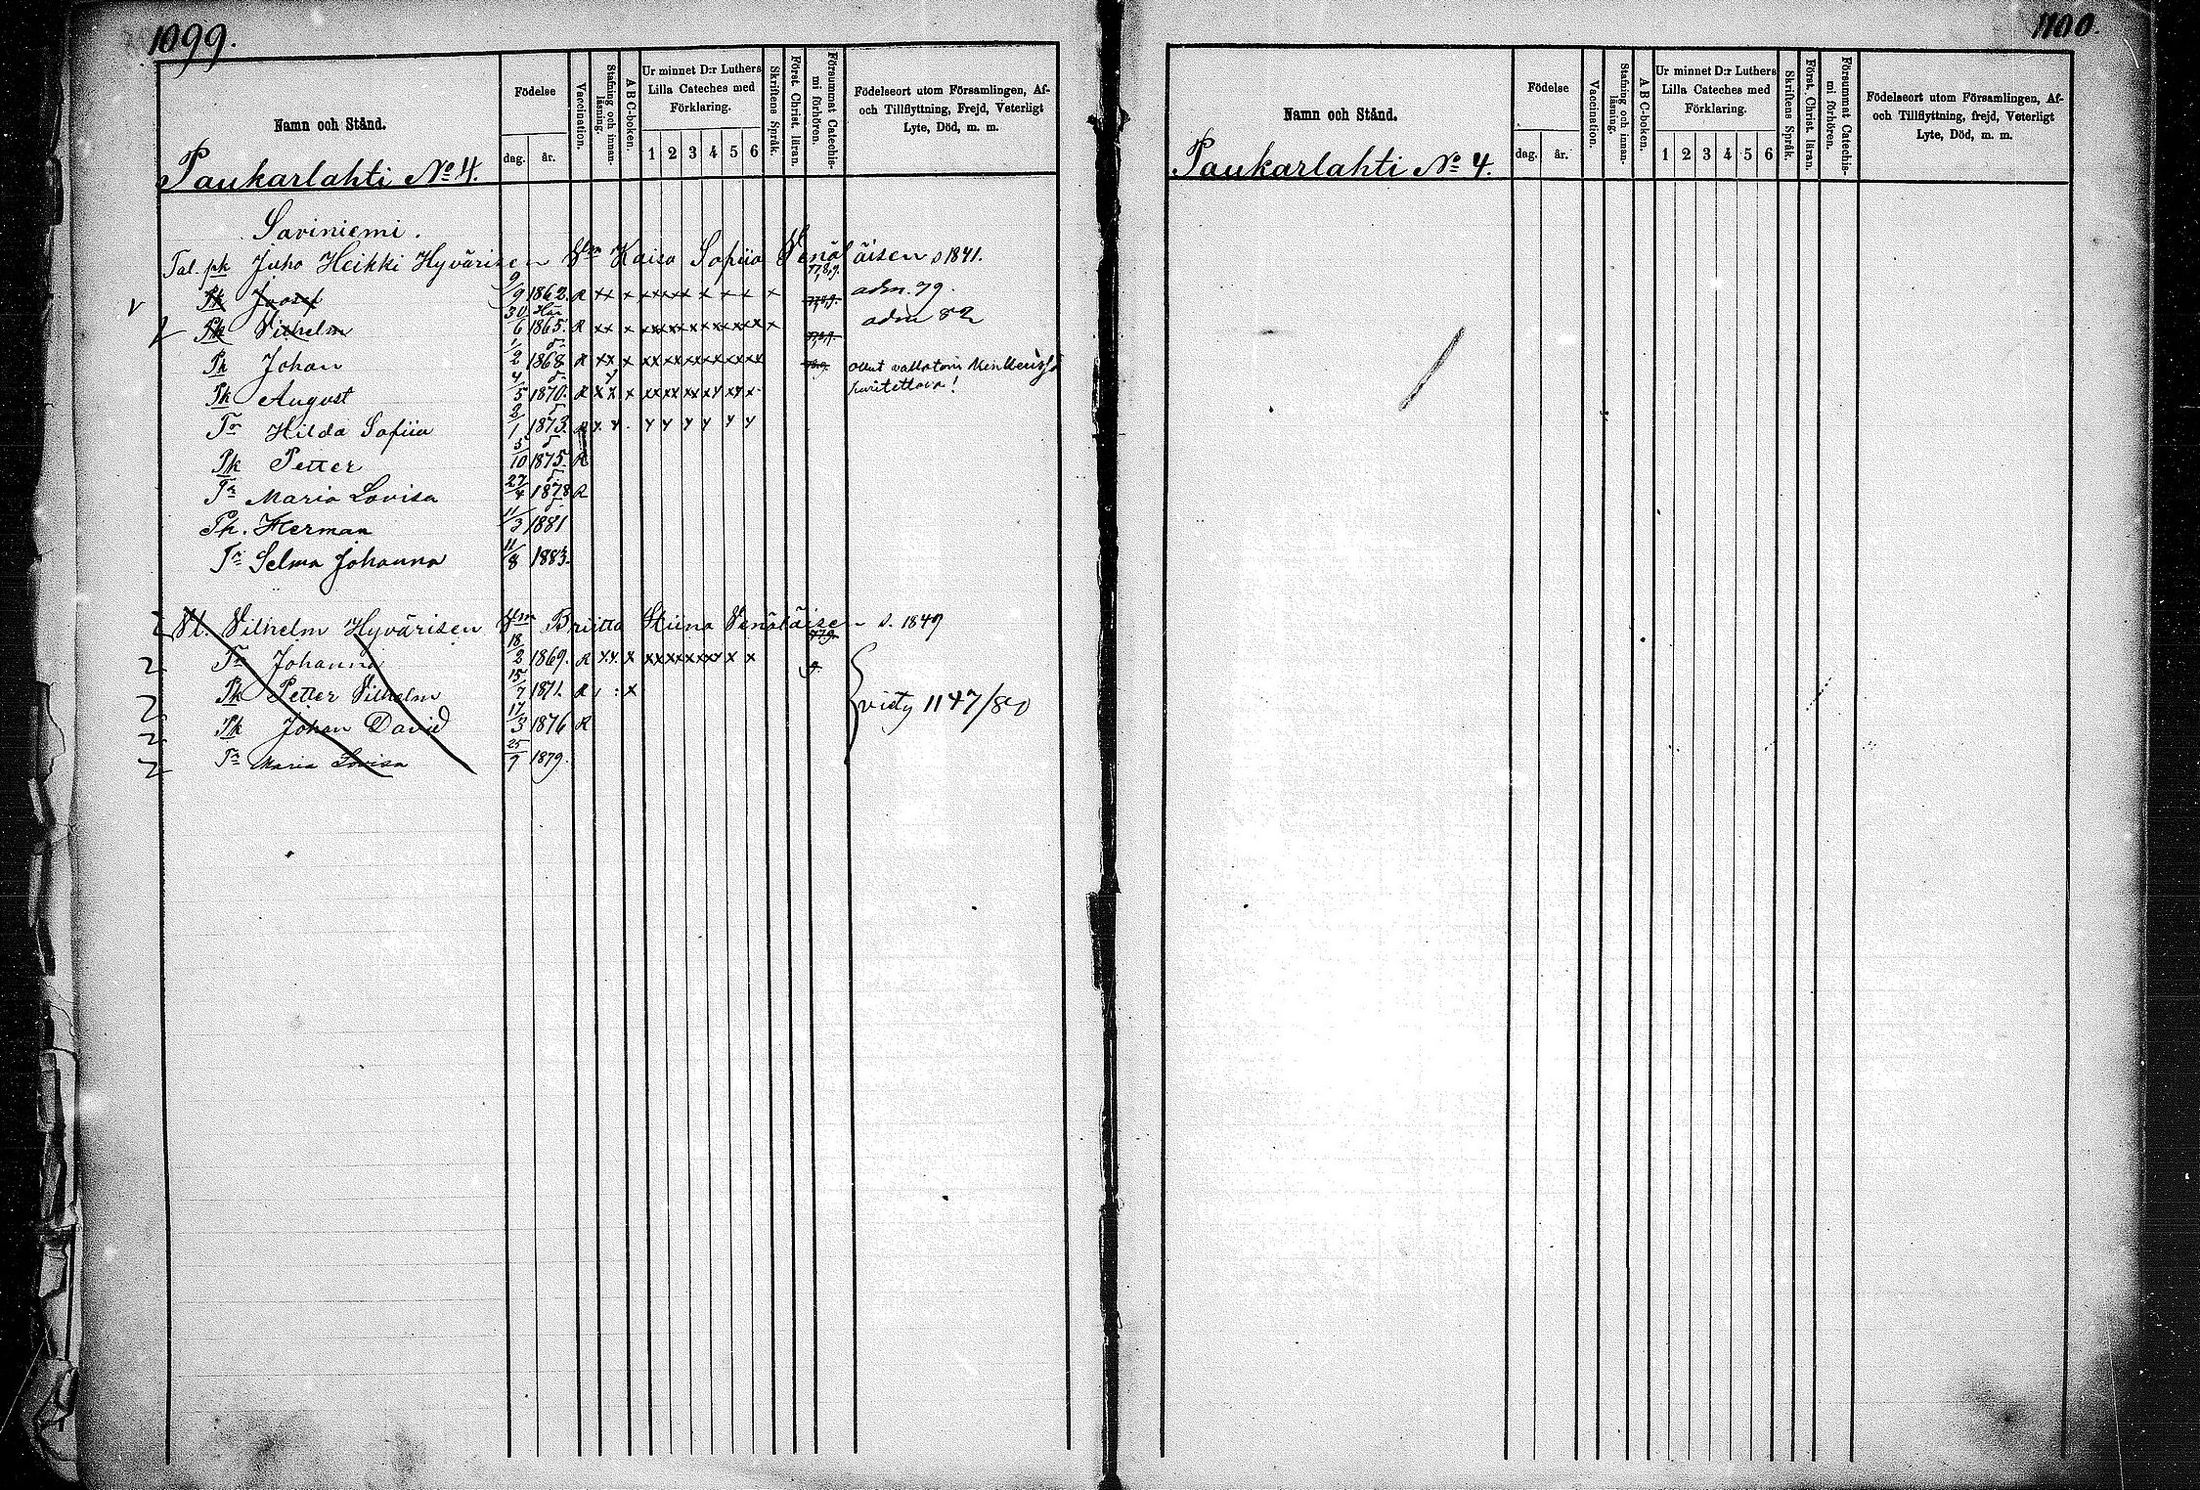 1099.
Namn och Stånd.
Födelse
dag. år.
Vaccination.
Stafning och innan-läsning.
A B C-boken.
Ur minnet D:r Luthers
Lilla Cateches med
Förklaring.
1 2 3 4 5 6
Skriftens Språk.
Först. Christ. läran.
Försummat Catechis-mi förhören.
Födelseort utom Församlingen, Af-
och Tillflyttning, Frejd, Veterligt
Lyte, Död, m. m.
Paukarlahti No 4.
Saviniemi.
Tal. pk Juho Heikki Hyvärisen Vm Kaisa Sofiia Venäläisen s 1841.
Pk Joosef 9/9 1862. R xx x xxxx x x x x adm. 79.
Pk Vilhelm 30/6 1865. R xx x xxxxxxxxxx x adm 82
Pk Johan 1/2 1868 R xx x xxxxxxxxxx ollut vallatoin
Pk August 4/5 1870. R xx x xx xx x kuritettava!
Tr Hilda Sofiia 2/1 1873. R
Pk Petter 5/10 1875. R
Tr Maria Lovisa 27/4 1878 R
Ph. Herman 11/3 1881
Tr Selma Johanna 11/8 1883.
Vl. Vilhelm Hyvärisen Vm Briitta Stiina Venäläise- s. 1849
Tr Johanna 18/2 1869. R x.x. x xxxxxxx x x
Pk Petter Vilhelm 15/7 1871. R x
Pk Johan David 17/3 1876 R
Tr Maria Lovisa 25/9 1879.
vidg 1147/80
1100.
Namn och Stånd.
Födelse
dag. år.
Vaccination.
Stafning och innan-läsning.
A B C-boken.
Ur minnet D:r Luthers
Lilla Cateches med
Förklaring.
1 2 3 4 5 6
Skriftens Språk.
Först. Christ. läran.
Försummat Catechis-mi förhören.
Födelseort utom Församlingen, Af-
och Tillflyttning, frejd, Veterligt
Lyte, Död, m. m.
Paukarlahti No 4.